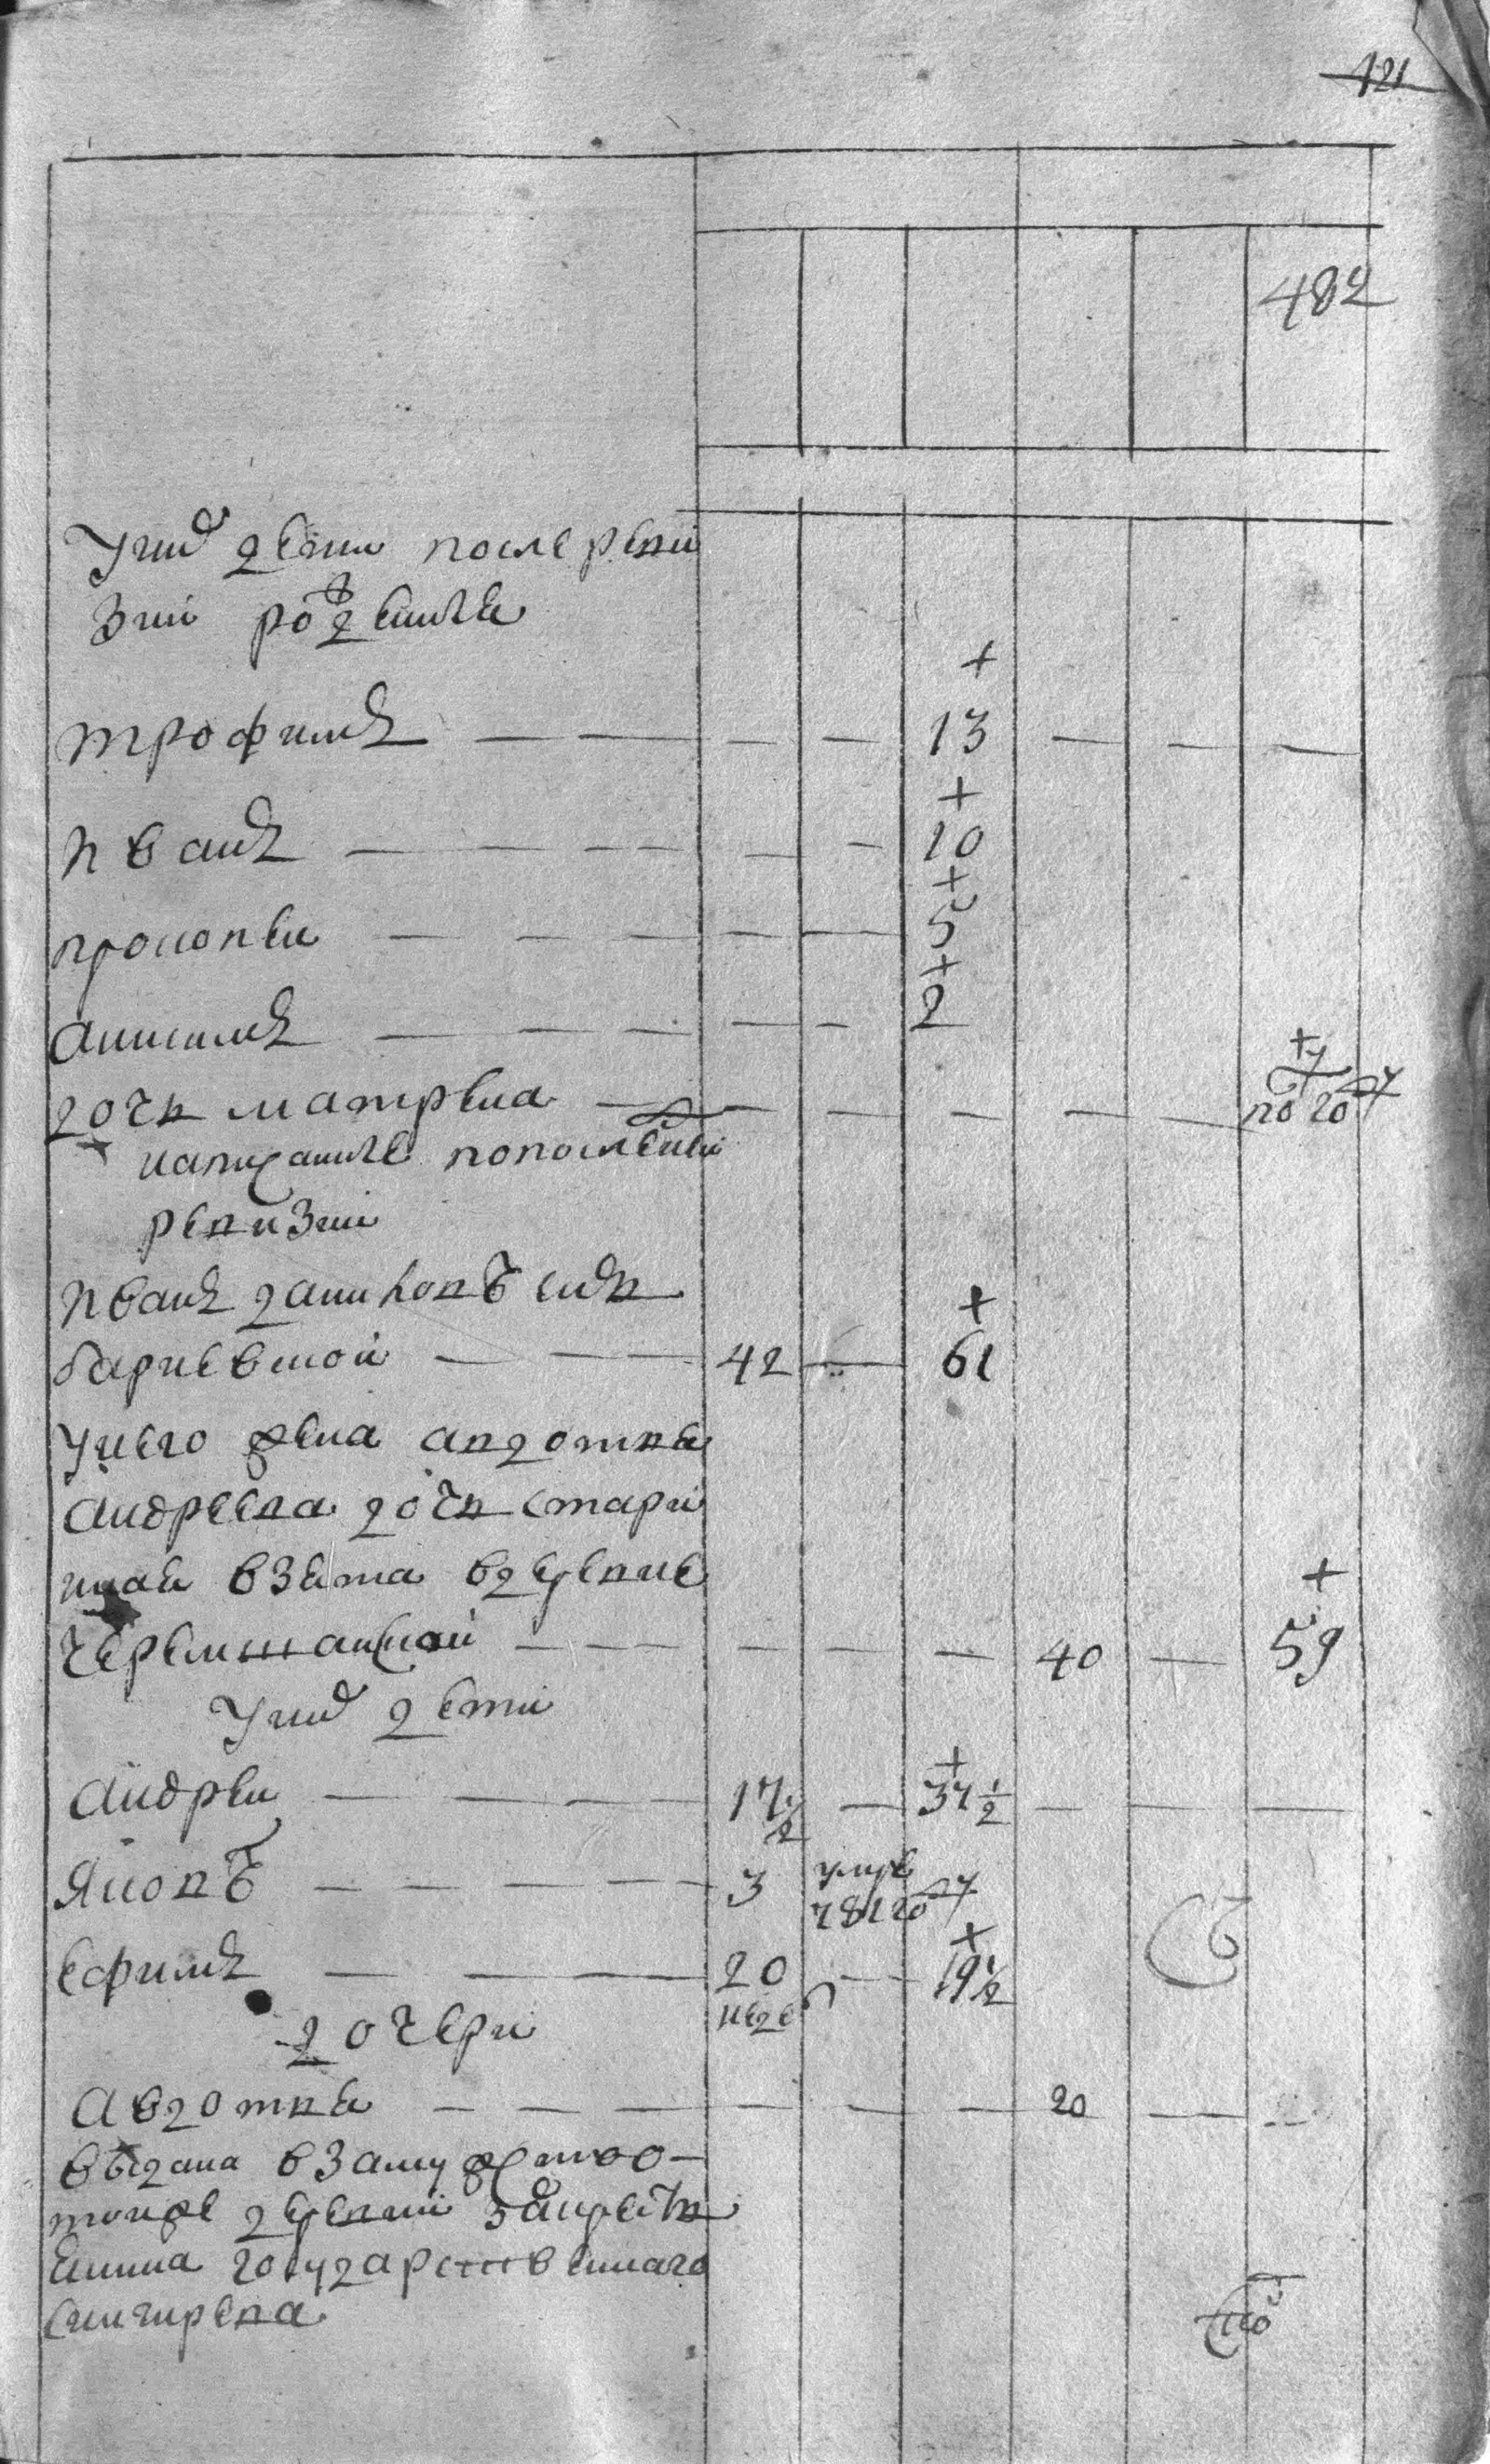 121
482
У них дети после реви
зии рожденные
Трофимъ — — — — 13 — — —
Иванъ — — — — 10
Прокопеи — — — — 5
Анисимъ — — — — 2
дочь Матрена — — — — — по году
написанные по последнеи
ревизии
Иванъ Даниловъ сынъ
— — — 42 — 61
У него жена Авдотья
Андреева дочь стари
ная взета в деревне
Черемшанской — — — — — — 40 — 59
У них дети
Андреи — — — — 17 1/2 — 37 1/2 — — —
Яковъ — — — — 3 умре 781 году
Ефимъ — — — 20 неде — 19 1/2
дочери
Авдотья — — — — — — 20 — —
выдана в замужство
тои же деревни за кресть
енина государственнаго